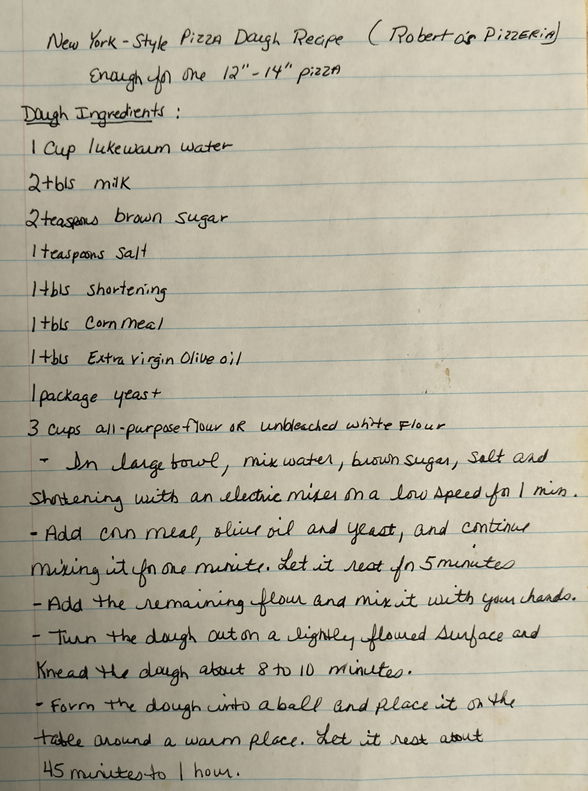 New York-Style Pizza Dough Recipe (Roberto's Pizzeria)
Enough for one 12"-14" pizza
Dough Ingredients:
1 Cup lukewarm water
2 tbls milk
2 teaspoons brown sugar
1 teaspoons salt
1 tbls shortening
1 tbls Corn meal
1 tbls Extra virgin Olive oil
1 package yeast
3 cups all-purpose flour OR unbleached white Flour
- In large bowl, mix water, brown sugar, salt and
shortening with an electric mixer on a low speed for 1 min.
- Add corn meal, olive oil and yeast, and continue
mixing it for one minute. Let it rest for 5 minutes
- Add the remaining flour and mix it with your hands.
- Turn the dough out on a lightly floured surface and
Knead the dough about 8 to 10 minutes.
- Form the dough into a ball and place it on the
table around a warm place. Let it rest about
45 minutes to 1 hour.